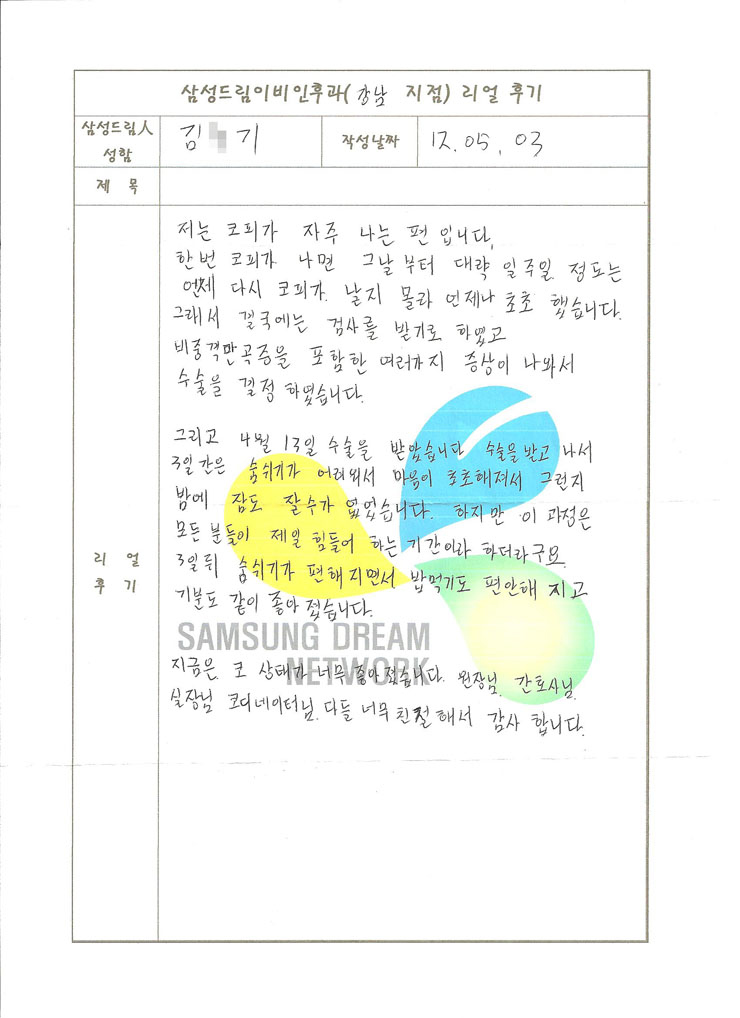 삼성드림이비인후과(강남 지점) 리얼 후기
삼성드림人 성함
김 기
작성날짜
12.05.03
제 목
리 얼 후 기
저는 코피가 자주 나는 편 입니다.
한번 코피가 나면 그날부터 대략 일주일 정도는
언제 다시 코피가 날지 몰라 언제나 초초 했습니다.
그래서 결국에는 검사를 받기로 하였고
비중격만곡증을 포함한 여러가지 증상이 나와서
수술을 결정 하였습니다.
그리고 4월 13일 수술을 받았습니다 수술을 받고 나서
3일간은 숨쉬기가 어려워서 마음이 초초해져서 그런지
밤에 잠도 잘수가 없었습니다. 하지만 이 과정은
모든 분들이 제일 힘들어 하는 기간이라 하더라구요
3일뒤 숨쉬기가 편해지면서 밥먹기도 편안해 지고
기분도 같이 좋아 졌습니다.
SAMSUNG DREAM
NETWORK
지금은 코 상태가 너무 좋아졌습니다. 원장님. 간호사님.
실장님 코디네이터님. 다들 너무 친절해서 감사 합니다.